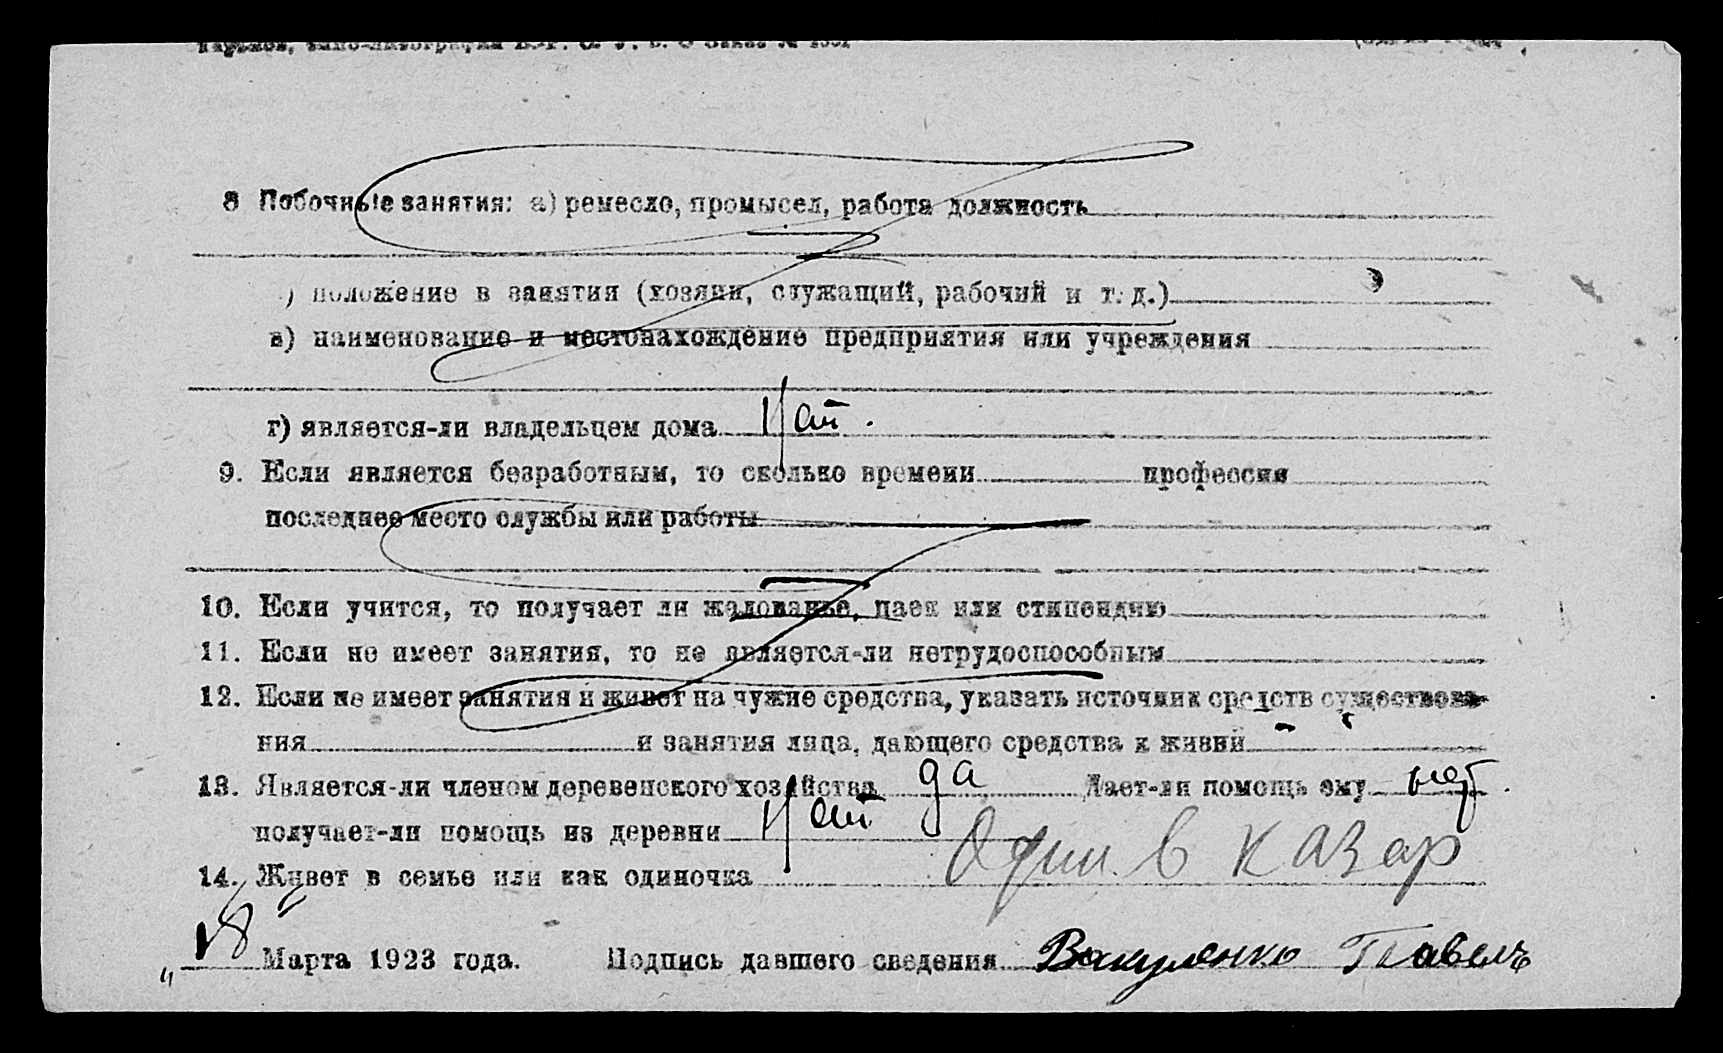 8 Побочные занятия: а) ремесло, промысел, работа должность
) положение в занятия (хозяин, служащий, рабочий и т. д.)
в) наименование и местонахождение предприятия или учреждения
г) является-ли владельцем дома Нет.
9. Если является безработным, то сколько времени профессия
последнее место службы или работы
10. Если учится, то получает ли жалованье, паек или стипендию
11. Если не имеет занятия, то не является-ли нетрудоспособным
12. Если не имеет занятия и живет на чужие средства, указать источник средств существова-
ния и занятия лица, дающего средства к жизни
13. Является-ли членом деревенского хозяйства да Дает-ли помощь ему нет.
получает-ли помощь из деревни Нет
14. Живет в семье или как одиночка Один в казар
„18 Марта 1923 года. Подпись давшего сведения Вакуленко Павелъ